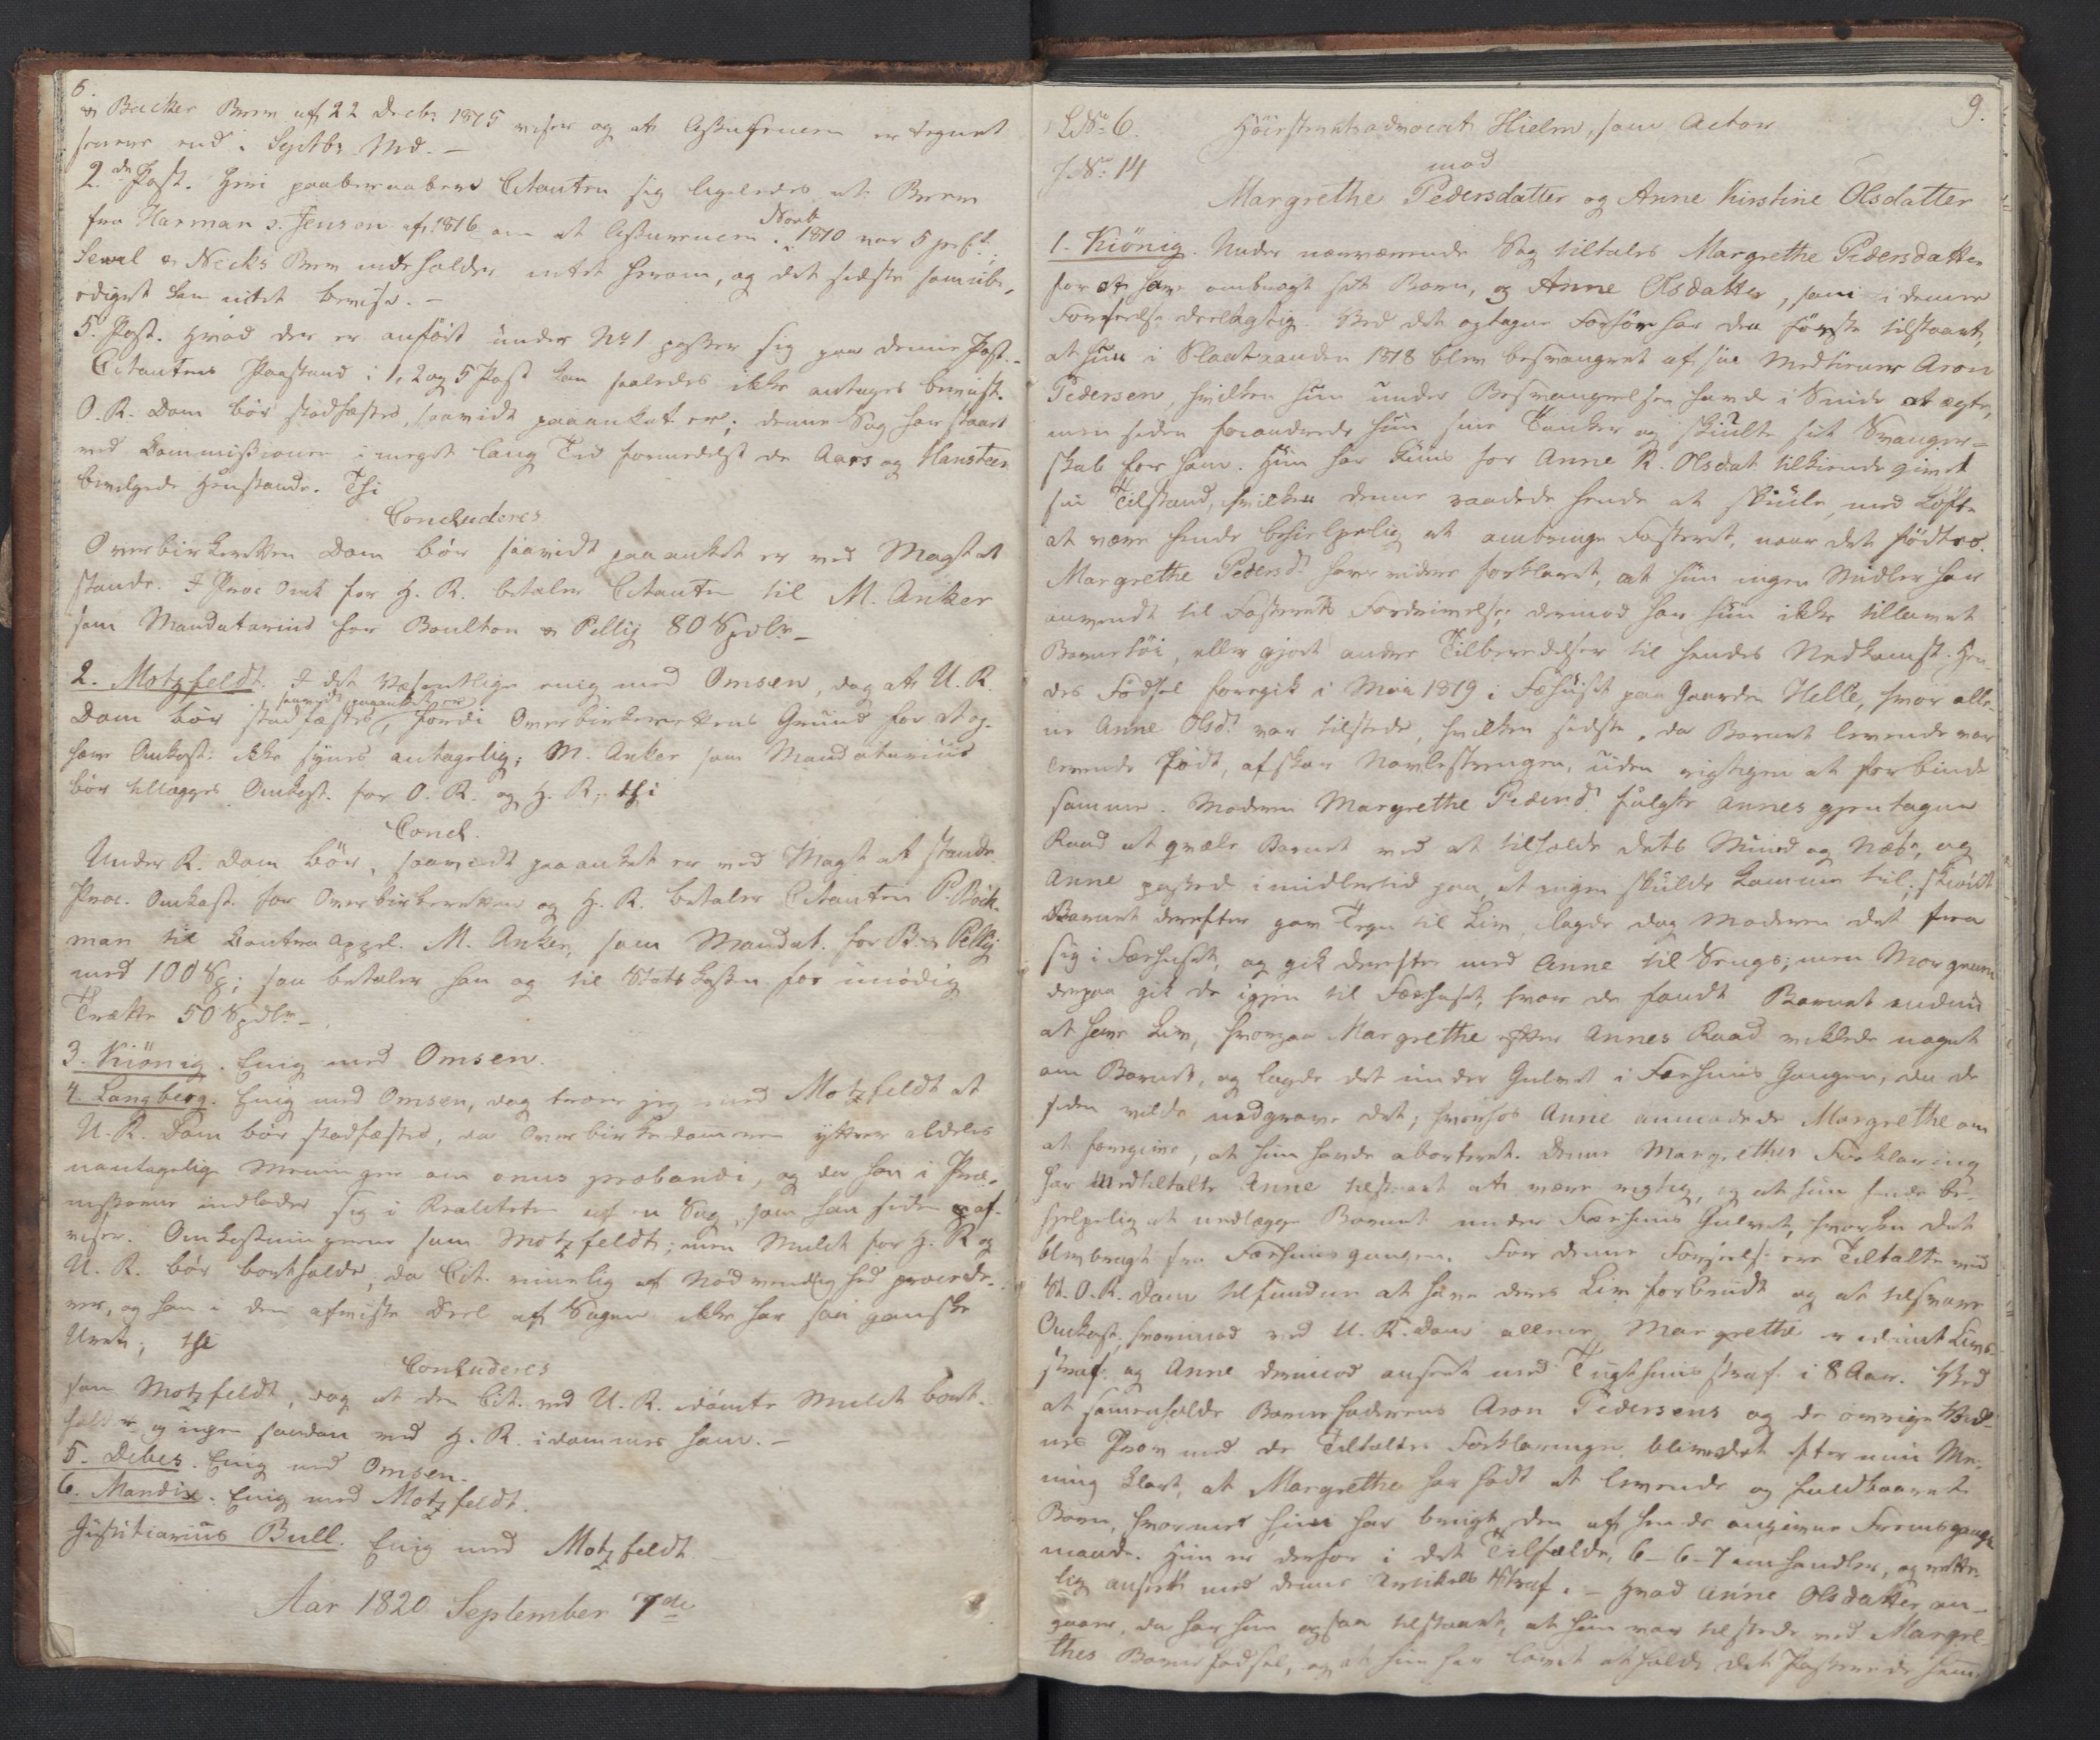 6.
& Backer Brev af 22 Decbr 1815 viser og at Assurancen er tegnet
senere end i Septbr Md. –
2.den Post. Heri paaberaaber Citanten sig ligeledes et Brev
fra Harman & Jensen af 1816 om at Assurancen i Novb 1810 var 5 prCt.;
Sewel & Necks Brev indeholder intet herom, og det sidste som ube-
ediget kan intet bevise. –
5. Post. Hvad der er anført under No 1 passer sig paa denne Post. –
Citantens Paastand i 1, 2 og 5 Post kan saaledes ikke antages beviist.
O.R. Dom bör stadfæstes, saavidt paaanket er; denne Sag har staaet
ved Commissionen i meget lang Tid formedelst de Aars og Hansteen
bevilgede Henstande. Thi
Concluderes
Overbirkerettens Dom bör saavidt paaanket er ved Magt at
stande. I Proc Omk for H. R. betaler Citanten til M. Anker
som Mandatarius for Boulton & Pellij 80 Spdlr –
2. Motzfeldt. I det Væsentlige enig med Omsen, dog at U. R.
Dom bör stadfæstes, saavidt paaanket er, fordi Overbirkerettens Grund for at op-
hæve Omkost. ikke synes antagelig; M. Anker som Mandatarius
bör tillægges Omkost. for O. R. og H. R. thi
Concl.
Under R. Dom bör, saavidt paaanket er ved Magt at stande.
Proc. Omkost. for Overbirkeretten og H. R. betaler Citanten P. Böck-
man til Contra Appel. M. Anker, som Mandat. for B. & Pellij
med 100 Sp; saa betaler han og til Statskassen for unödig
Trætte 50 Spdlr –
3. Kiönig. Enig med Omsen.
4. Langberg. Enig med Omsen, dog troer jeg med Motzfeldt at
U. R. Dom bör stadfæstes, da Overbirkedommeren yttrer aldeles
uantagelige Meninger om onus probandi, og da han i Præ-
misserne indlader sig i Realiteten af en Sag, som han siden af-
viser. Omkostningerne som Motzfeldt; men Mulct for H. R og
U. R. bör bortfalde, da Cit. rimelig af Nödvendighed procede-
rer, og han i den afviste Deel af Sagen ikke har saa ganske
Uret; thi
Concluderes
som Motzfeldt, dog at den Cit. ved U. R. idömte Mulct bort-
falder og ingen saadan ved H. R. idömmes ham. –
5. Debes. Enig med Omsen.
6. Mandix. Enig med Motzfeldt.
Justitiarius Bull. Enig med Motzfeldt
Aar 1820 September 7de
9.
L No. 6. Höiesteretsadvocat Hielm, som Actor
J. No. 14 mod
Margrethe Pedersdatter og Anne Kirstine Olsdatter
1. Kiönig. Under nærværende Sag tiltales Margrethe Pedersdatter
for at have ombragt sit Barn, og Anne Olsdatter, som i denne
Forbrydelse deelagtig. Ved det optagne Forhör har den förste tilstaaet,
at hun i Slaataanden 1818 blev besvangret af sin Medtiener Aron
Pedersen, hvilken hun under Besvangrelsen havde i Sinde at ægte,
men siden forandrede hun sine Tanker og skiulte sit Svanger-
skab for ham. Hun har kuns for Anne K. Olsdat. tilkiendegivet
sin Tilstand, hvilken denne raadede hende at skiule med Löfte
at være hende behielpelig at ombringe Fosteret, naar det födtes.
Margrethe Pedersd. har videre forklaret, at hun ingen Midler har
anvendt til Fosterets Fordrivelse; derimod har hun ikke tillavet
Barnetöi, eller gjort andre Tilberedelser til hendes Nedkomst. Hen-
des Födsel foregik i Mai 1819 i Fæhuset paa Gaarden Helle, hvor alle-
ne Anne Olsd. var tilstede, hvilken sidste, da Barnet levende var
levende födt, afskar Navlestrengen, uden rigtigen at forbinde
samme. Moderen Margrethe Pedersd. fulgte Annes gjentagne
Raad at qvæle Barnet ved at tilholde dets Mund og Næse, og
Anne passede imidlertid paa, at ingen skulde komme til; skiöndt
Barnet derefter gav Tegn til Liv, lagde dog Moderen det fra
sig i Fæehuset, og gik derefter med Anne til Sengs; men Morgenen
derpaa gik de igjen til Fæehuset, hvor de fandt Barnet endnu
at have Liv, hvorpaa Margrethe efter Annes Raad viklede noget
om Barnet, og lagde det under Gulvet i Fæehuus Gangen, da de
siden vilde nedgrave det; hvorhos Anne anmodede Margrethe om
at foregive, at hun havde aborteret. Denne Margrethes Forklaring
har Medtiltalte Anne tilstaaet at være rigtig, og at hun hende be-
hjelpelig at nedlægge Barnet under Fæehuus Gulvet, hvorhen det
blev bragt fra Fæehuusgangen. For denne Forbrydelse ere Tiltalte ved
St. O. R. Dom tilfunden at have deres Liv forbrudt og at tilsvare
Omkost, hvorimod ved U. R. Dom allene Margrethe er idömt Livs-
straf og Anne derimod anseet med Tugthuusstraf i 8 Aar. Ved
at sammenholde Barnefaderens Aron Pedersens og de övrige Vid-
ners Prov med de Tiltaltes Forklaringer, bliver det efter min Me-
ning klart, at Margrethe har födt et levende og fuldbaaret
Barn, hvormed hun har brugt den af hende angivne Fremgangs-
maade. Hun er derfor i det Tilfælde, 6-6-7 omhandler, og rette-
lig anseet med denne Artikels Straf. – Hvad Anne Olsdatter an-
gaaer, da har hun ogsaa tilstaaet, at hun var tilstede ved Margre-
thes Barnefödsel, og at hun har lovet at holde det Passerede hem-